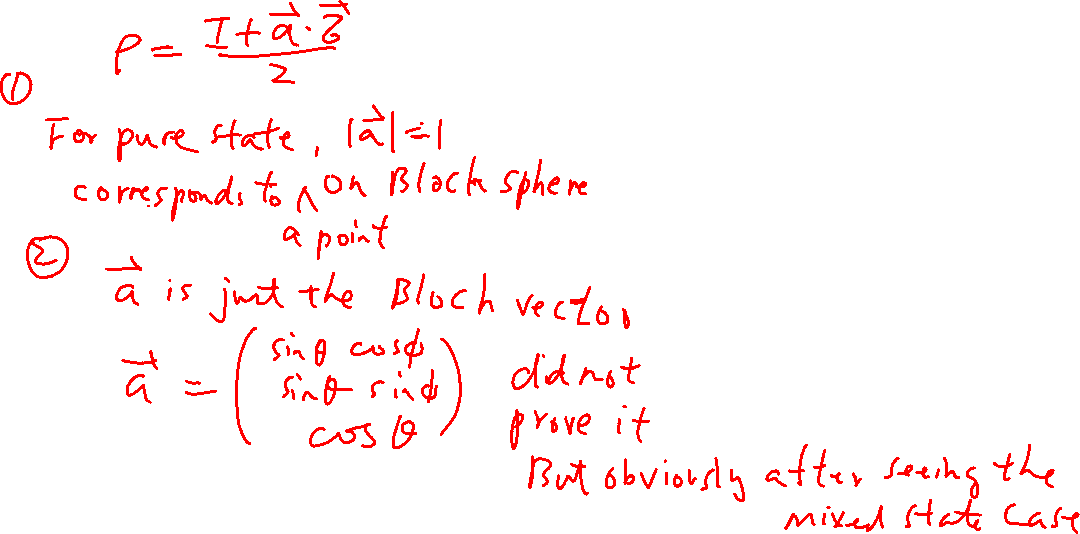 ρ = (I + a⃗·σ⃗) / 2
①
For pure state, |a⃗| = 1
corresponds to ^ on Bloch sphere
a point
②
a⃗ is just the Bloch vector
a⃗ = ( sinθ cosϕ
sinθ sinϕ
cosθ )
did not
prove it
But obviously after seeing the
mixed state case